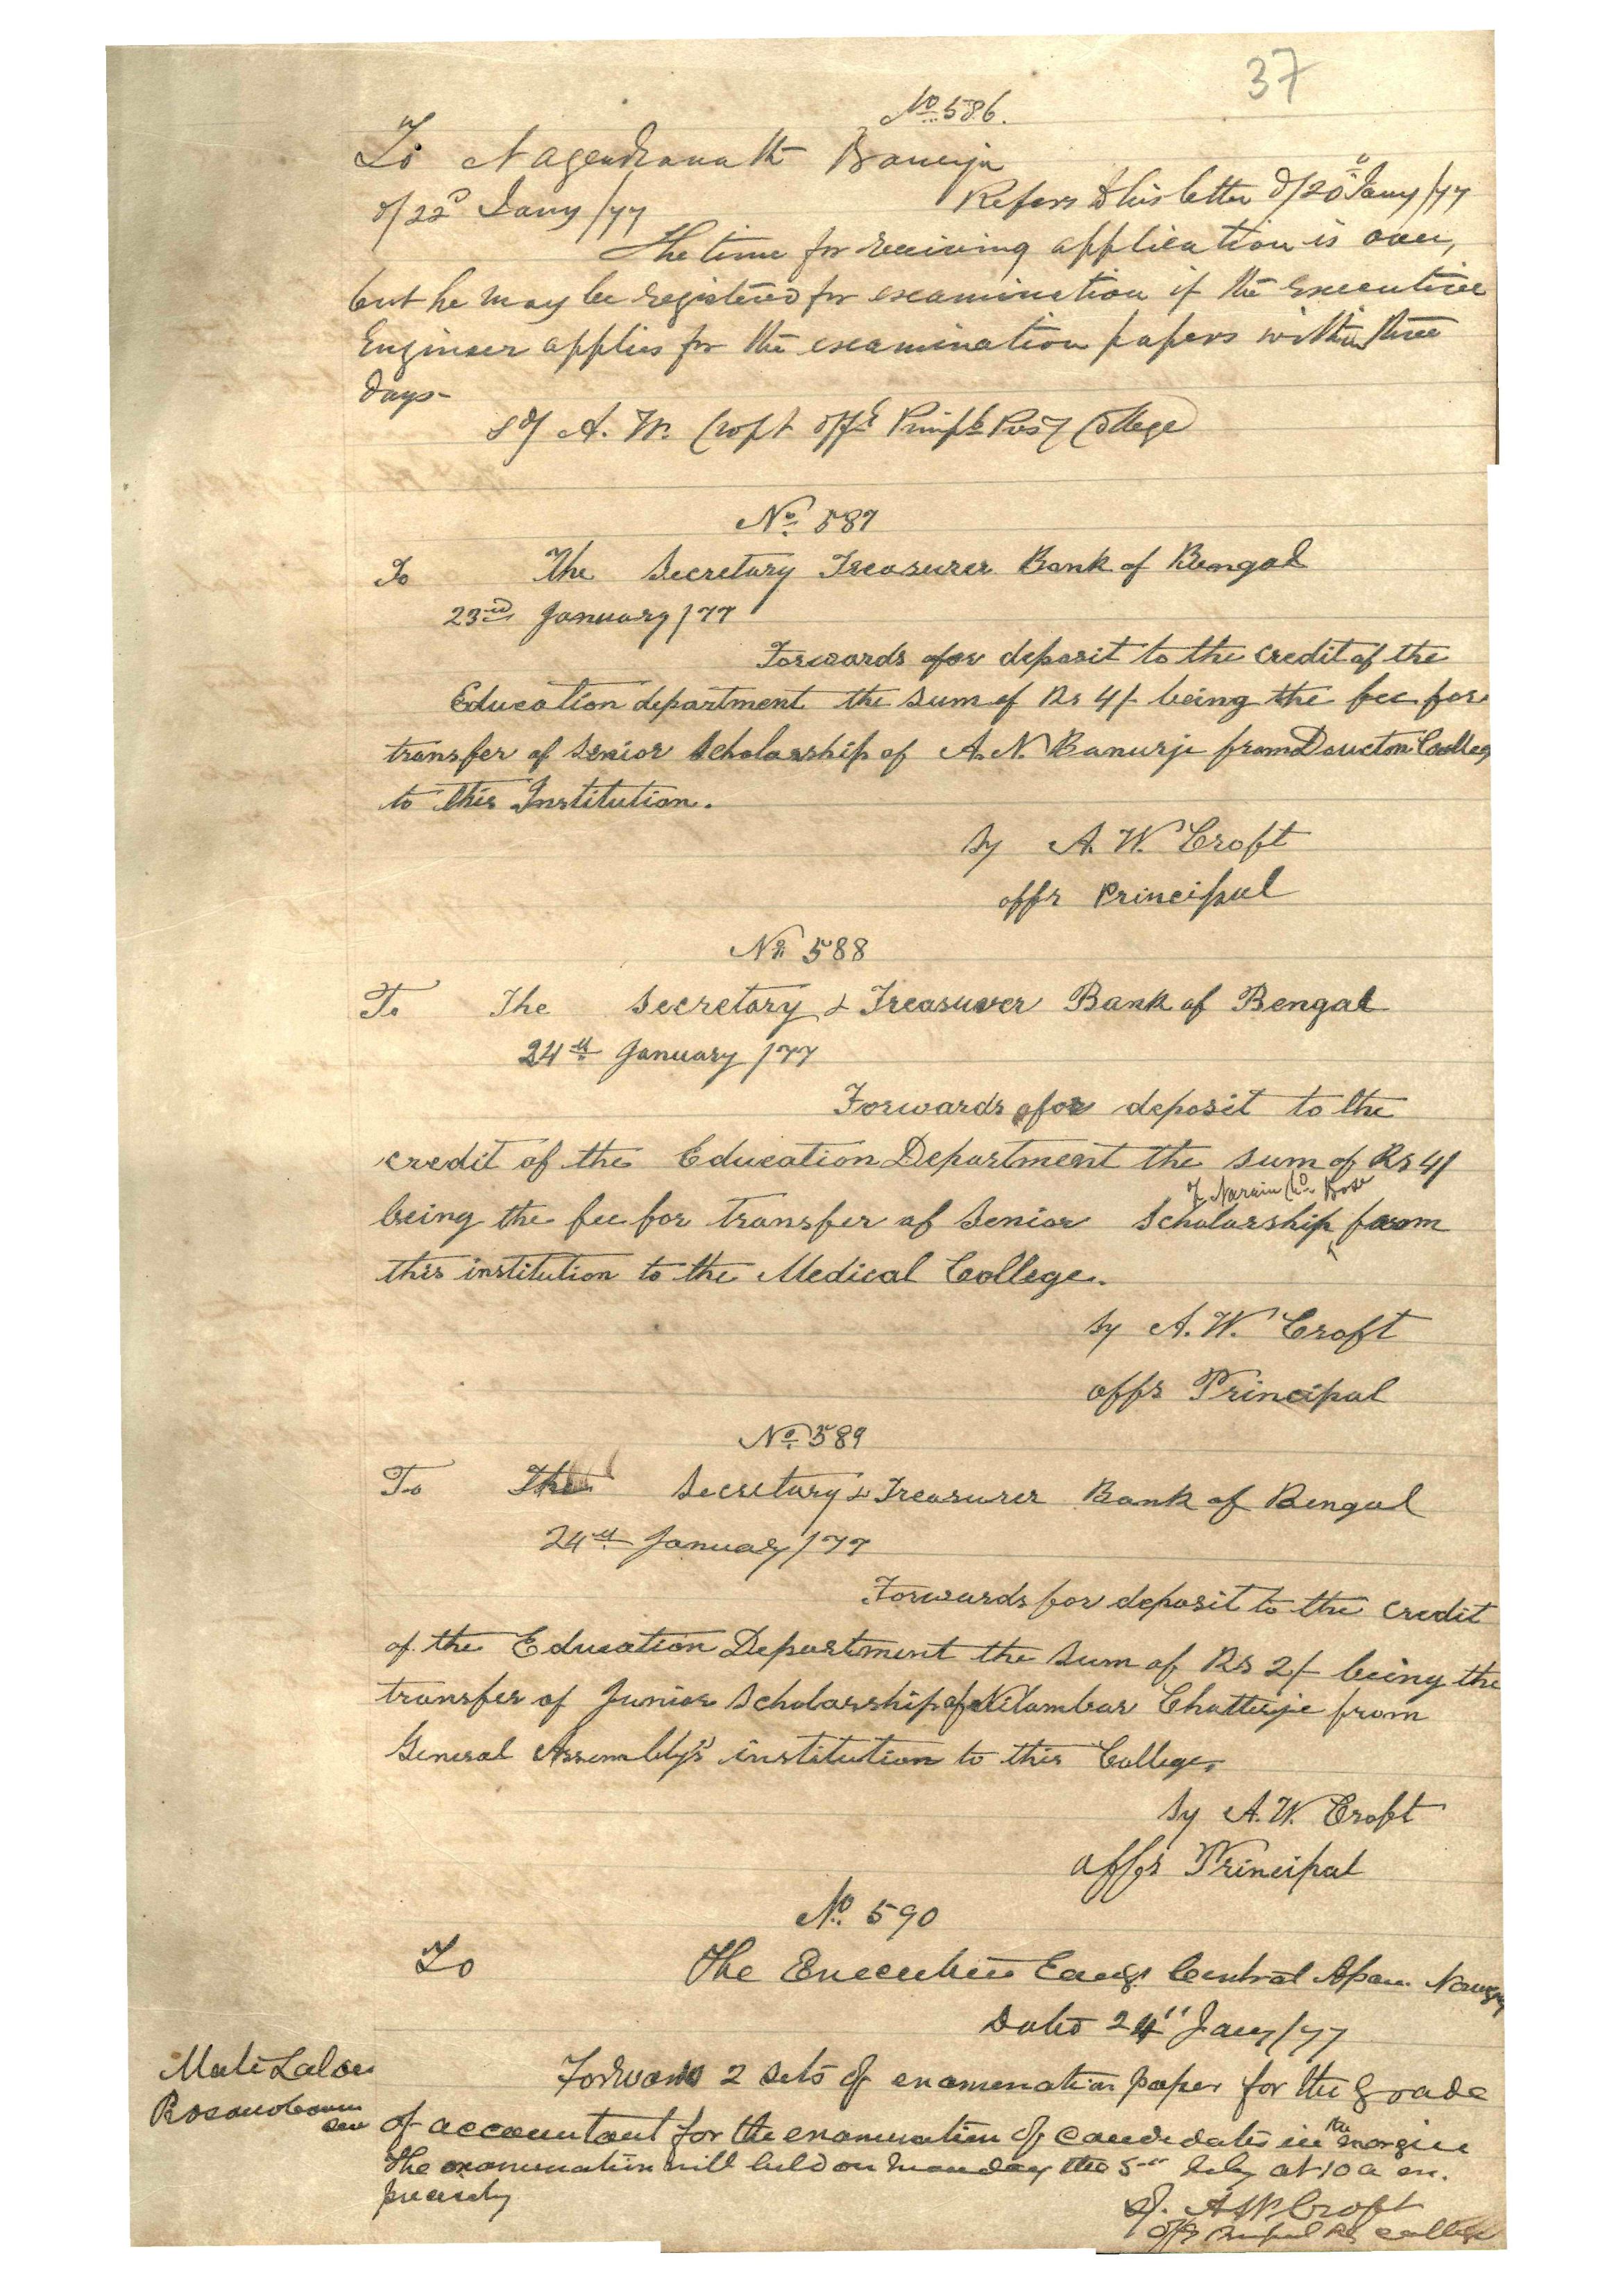 37
No 586.
To Nagendranath Banerjee
d/22d Jany/77 Refers to his letter d/20th Jany/77
The time for receiving application is over,
but he may be registered for examination if the Executive
Engineer applies for the examination papers within three
days-
Sd/ A. W. Croft Offg Princpl Presy College
No 587
To The Secretary Treasurer Bank of Bengal
23rd January/77
Forwards for deposit to the credit of the
Education department the sum of Rs 4/- being the fee for
transfer of Senior Scholarship of A. N. Banurji from Doucton College
to this Institution.
Sy A. W. Croft
offg Principal
No 588
To The Secretary & Treasurer Bank of Bengal
24th January/77
Forwards for deposit to the
credit of the Education Department the sum of Rs 4/
of Narain Ch. Bose
being the fee for transfer of Senior Scholarship from
this institution to the Medical College.
Sy A. W. Croft
offg Principal
No 589
To The Secretary & Treasurer Bank of Bengal
24th January/77
Forwards for deposit to the credit
of the Education Department the sum of Rs 2/- being the
transfer of Junior Scholarship of Nilambar Chatterje from
General Assembly's institution to this College.
Sy A. W. Croft
offg Principal
No 590
To The Executive Eng Central
Dated 24th Jany/77
Forwards 2 sets of examination paper for the grade
of accountant for the examination of candidates in the margin
The examination will held on Monday the 5th at 10 a m.
precisely
Sd. A W Croft
Offg College